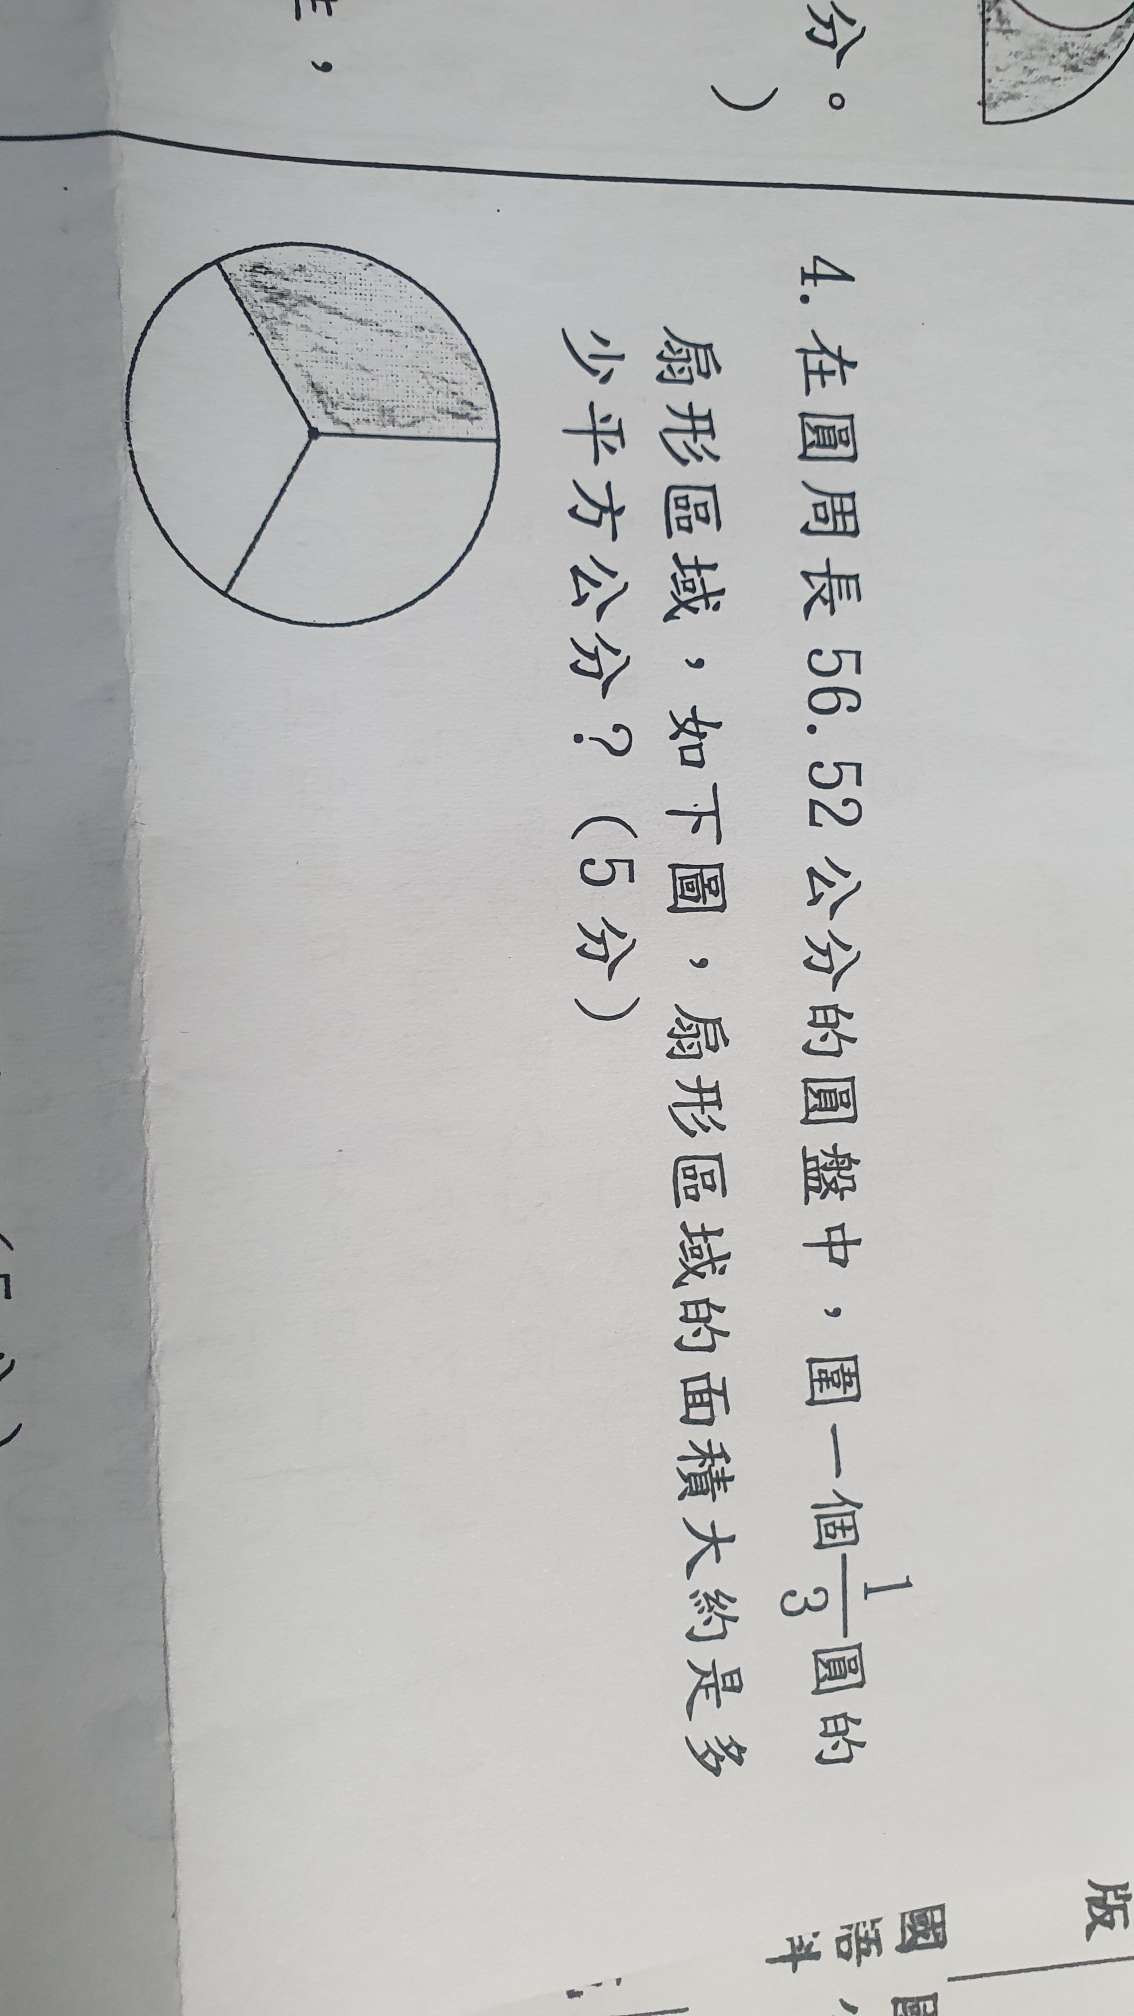 分。
）
4. 在圓周長56.52公分的圓盤中，圍一個1/3圓的
扇形區域，如下圖，扇形區域的面積大約是多
少平方公分？（5分）
版
國
語